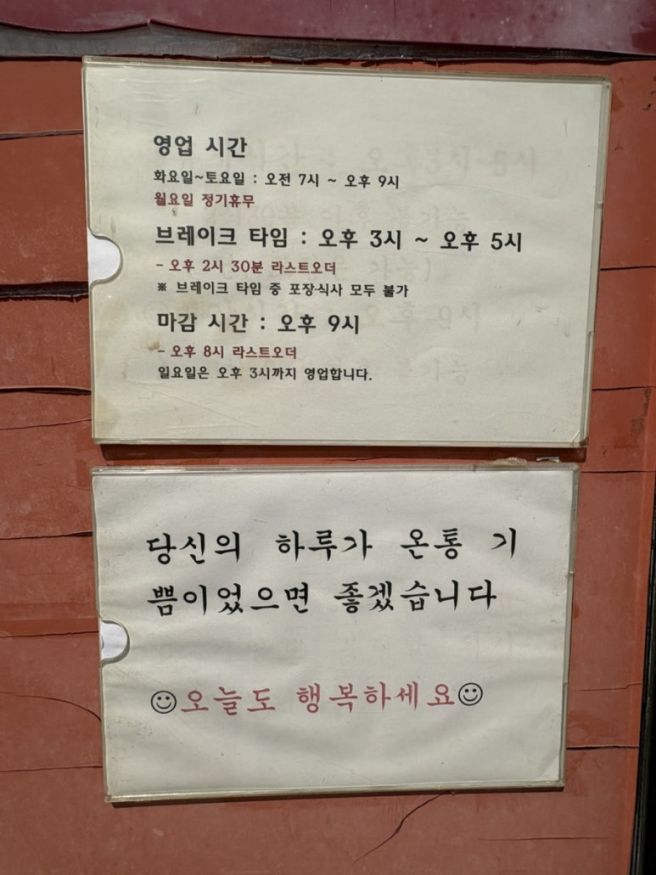 영업 시간
화요일~토요일 : 오전 7시 ~ 오후 9시
월요일 정기휴무
브레이크 타임 : 오후 3시 ~ 오후 5시
- 오후 2시 30분 라스트오더
※ 브레이크 타임 중 포장식사 모두 불가
마감 시간 : 오후 9시
- 오후 8시 라스트오더
일요일은 오후 3시까지 영업합니다.
당신의 하루가 온통 기
쁨이었으면 좋겠습니다
☺오늘도 행복하세요☺